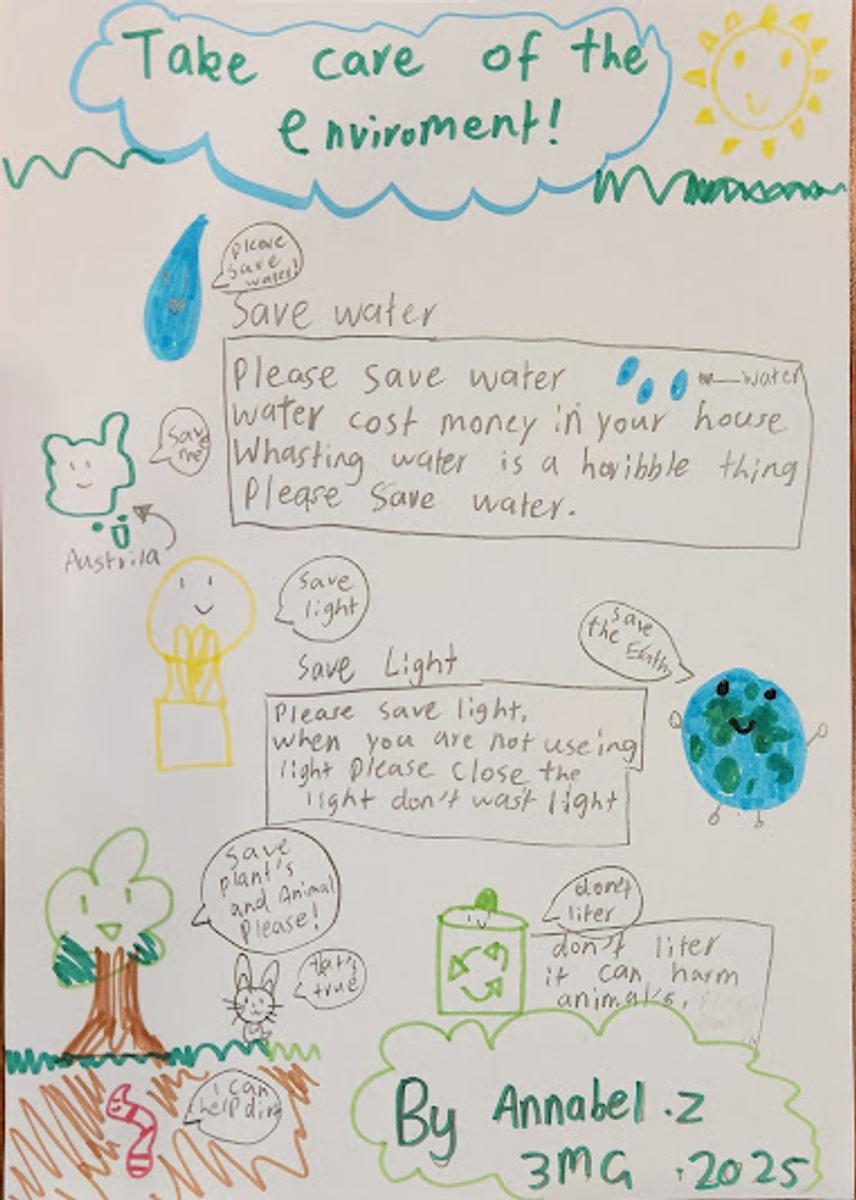 Take care of the
enviroment!
please
save
water!
Save water
Please save water
water
water cost money in your house
Whasting water is a horibble thing
Please Save water.
Save
me
Austrila
Save
light
Save Light
Please save light,
when you are not useing
light please close the
light don't wast light
save
the Earth
Save
plant's
and Animal
Please!
that's
true
i can
help dirt
don't
liter
don't liter
it can harm
animal's.
By Annabel .Z
3MG .2025